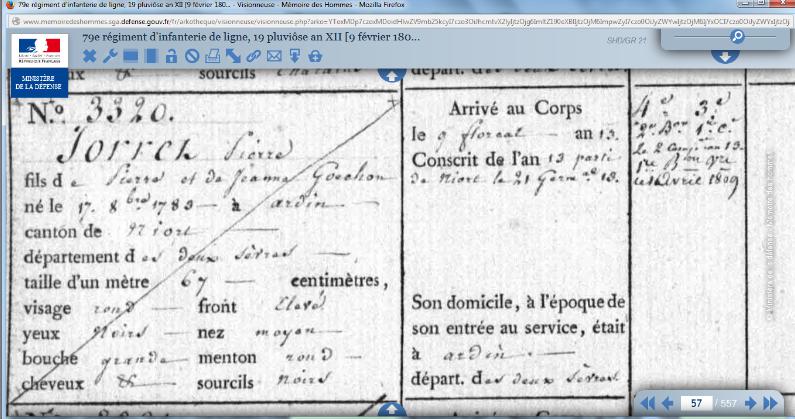 79e régiment d'infanterie de ligne, 19 pluviôse an XII [9 février 180... - Visionneuse - Mémoire des Hommes - Mozilla Firefox
www.memoiredeshommes.sga.defense.gouv.fr/fr/arkotheque/visionneuse/visionneuse.php?arko=
79e régiment d'infanterie de ligne, 19 pluviôse an XII [9 février 180...
SHD/GR 21
Liberté • Égalité • Fraternité
RÉPUBLIQUE FRANÇAISE
MINISTÈRE
DE LA DÉFENSE
sourcils
départ. des
N.º 3320.
Pierre
fils de Pierre et de Jeanne
né le 17. 8bre 1783 à ardin
canton de Niort
département des deux sèvres
taille d'un mètre 67 centimètres,
visage rond front Elevé
yeux Noirs nez moyen
bouche grande menton rond
cheveux & sourcils noirs
Arrivé au Corps
le 9 floreal an 13.
Conscrit de l'an 13 parti
de Niort le 21 Germal 13.
Son domicile, à l'époque de
son entrée au service, était
à ardin
départ. des deux sèvres
4e 3e
le 2 an 13.
Avril 1809
57 / 557